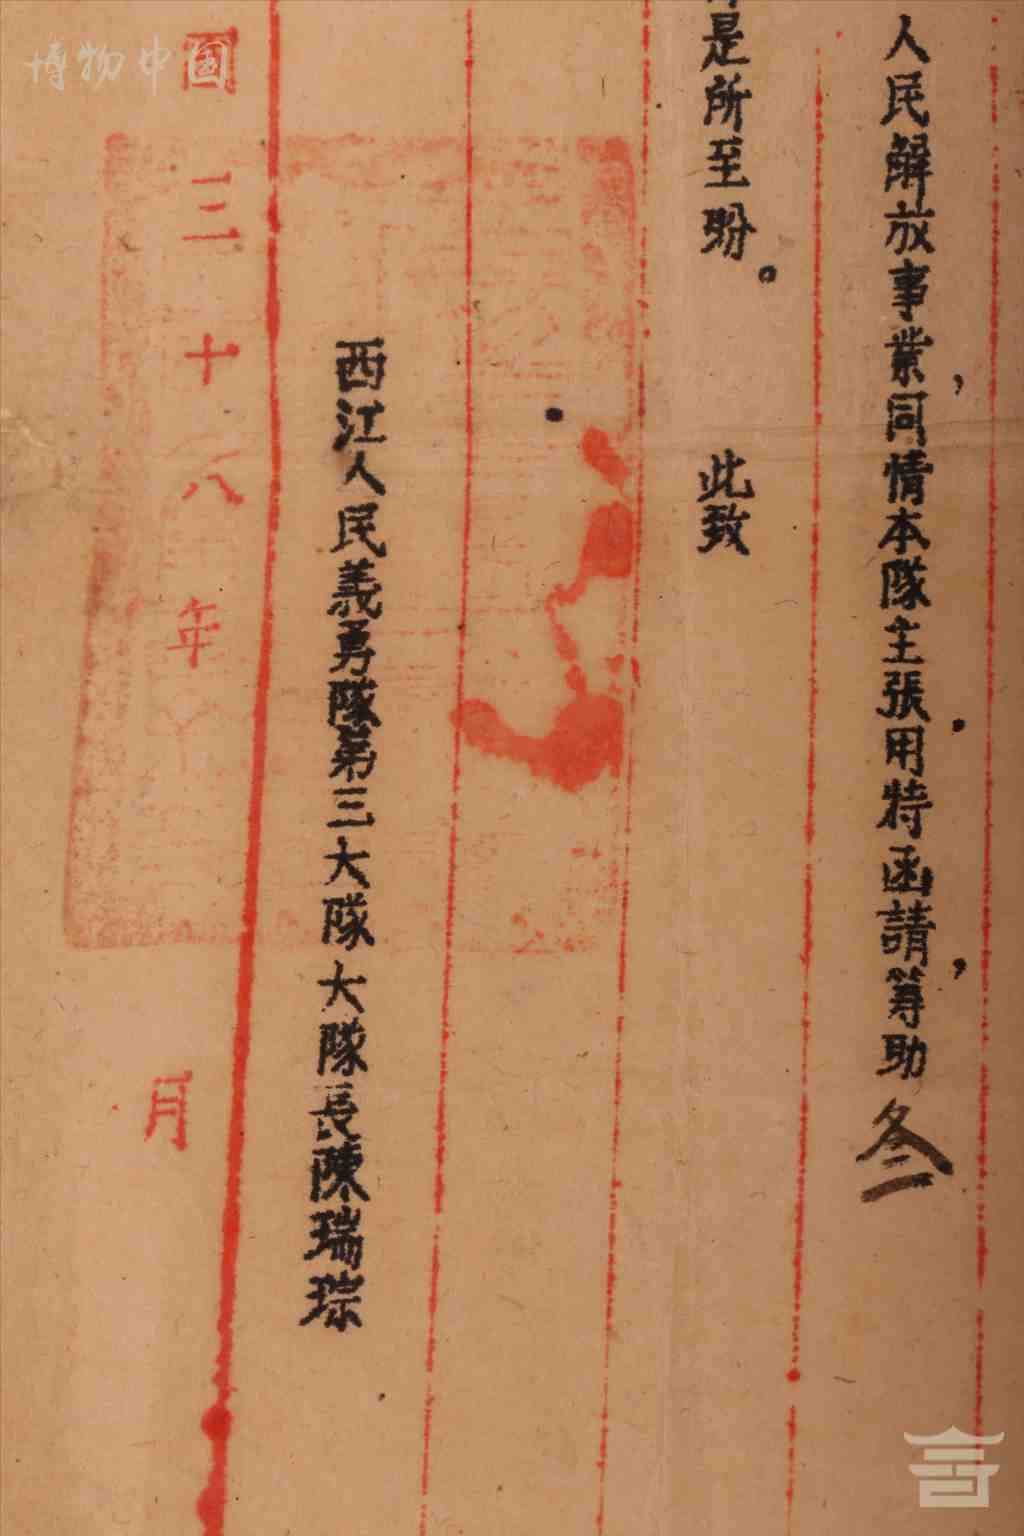 人民解放事業，同情本隊主張．用特函請筹助，叁
是所至盼。 此致
西江人民義勇隊第三大隊大隊長陳瑞琮
國三十八年 月
博物中国